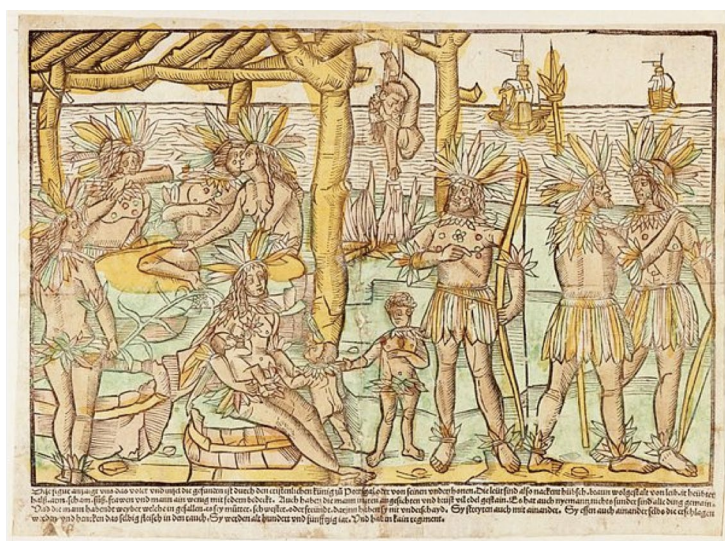 Dise figur anzaigt uns das volck und insel die gefunden ist durch den cristenlichen künig zů Portigal oder von seinen underthonen. Die leüt sind also nackent hübsch. braun wolgestalt von leib. ir heübter
halß. arm. scham. füß. frawen und mann ain wenig mit federn bedeckt. Auch haben die mann in iren angesichten und brust vil edel gestain. Es hat auch nyemantz nichts sunder sind alle ding gemain.
Und die mann habendt weyber welche in gefallen. es sey mütter, schwester oder freünde. darinn haben sy kain underschayd. Sy streyten auch mit ainander. Sy essen auch ainander selbs die erschlagen
werden und hencken das selbig fleisch in den rauch. Sy werden alt hundert und fünfftzig iar. Und haben kain regiment.